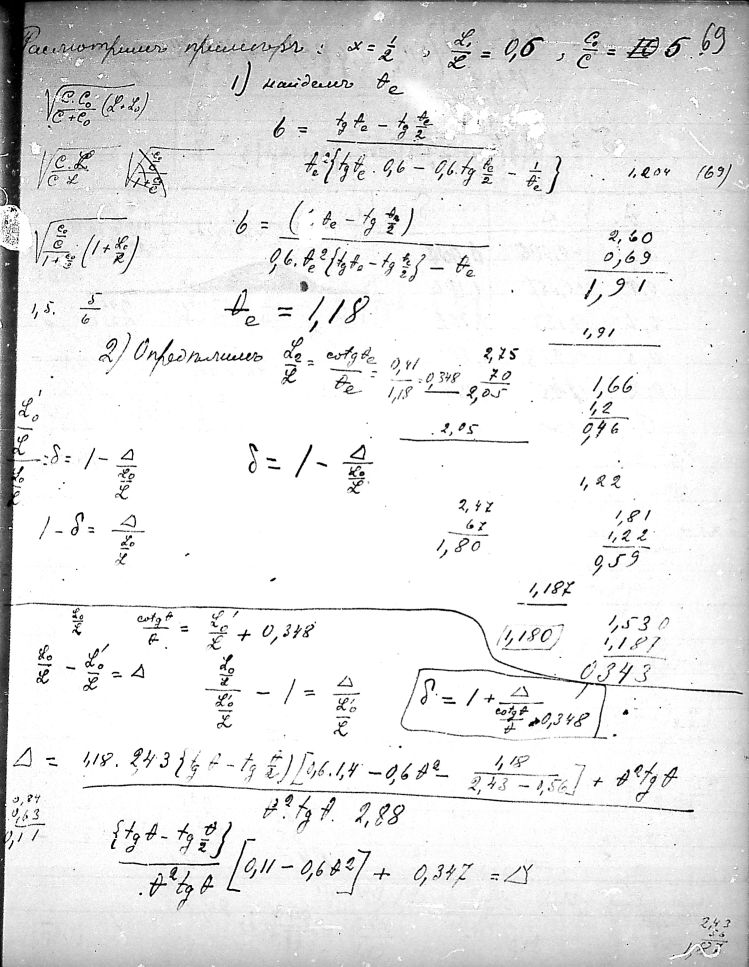 Рассмотримъ примѣръ: x = 1/2, L₁/L = 0,6, C₀/C = 5. 69
1) найдемъ t_e
√(C·C₀/(C+C₀) (L+L₀))
6 = (tg t_e − tg t_e/2) / (t_e² {tg t_e · 0,6 − 0,6 · tg t_e/2 − 1/t_e})
1,204 (69)
6 = ( t_e − tg t_e/2) / (0,6 · t_e² {tg t_e − tg t_e/2} − t_e)
√((C₀/C)/(1+C₀/C) (1 + L₀/L))
2,60
0,69
1,91
1,5. 5/6
t_e = 1,18
1,91
2) Опредѣлимъ L₂/L = cotg t_e / t_e = 0,41/1,18 = 0,348
2,75
70
2,05
1,66
1,2
0,46
2,05
δ = 1 − Δ/(L₀/L)
δ = 1 − Δ/(L₀/L)
1,22
1 − δ = Δ/(L₀/L)
2,47
67
1,80
1,81
1,22
0,59
1,187
L₀/L
cotg t / t = L₀'/L + 0,348
(1,180)
1,530
1,187
0,343
L₀/L − L₀'/L = Δ
(L₀/L)/(L₀'/L) − 1 = Δ/(L₀'/L)
δ = 1 + Δ/(cotg t / t − 0,348)
Δ = (1,18 · 2,43 {tg t − tg t/2} [0,6 · 1,4 − 0,6 t² − 1,18/(2,43 − 0,56)] + t² tg t) / (t² · tg t · 2,88)
0,84
0,63
0,11
{tg t − tg t/2} / (t² tg t) [0,11 − 0,6 t²] + 0,347 = Δ
2,43
56